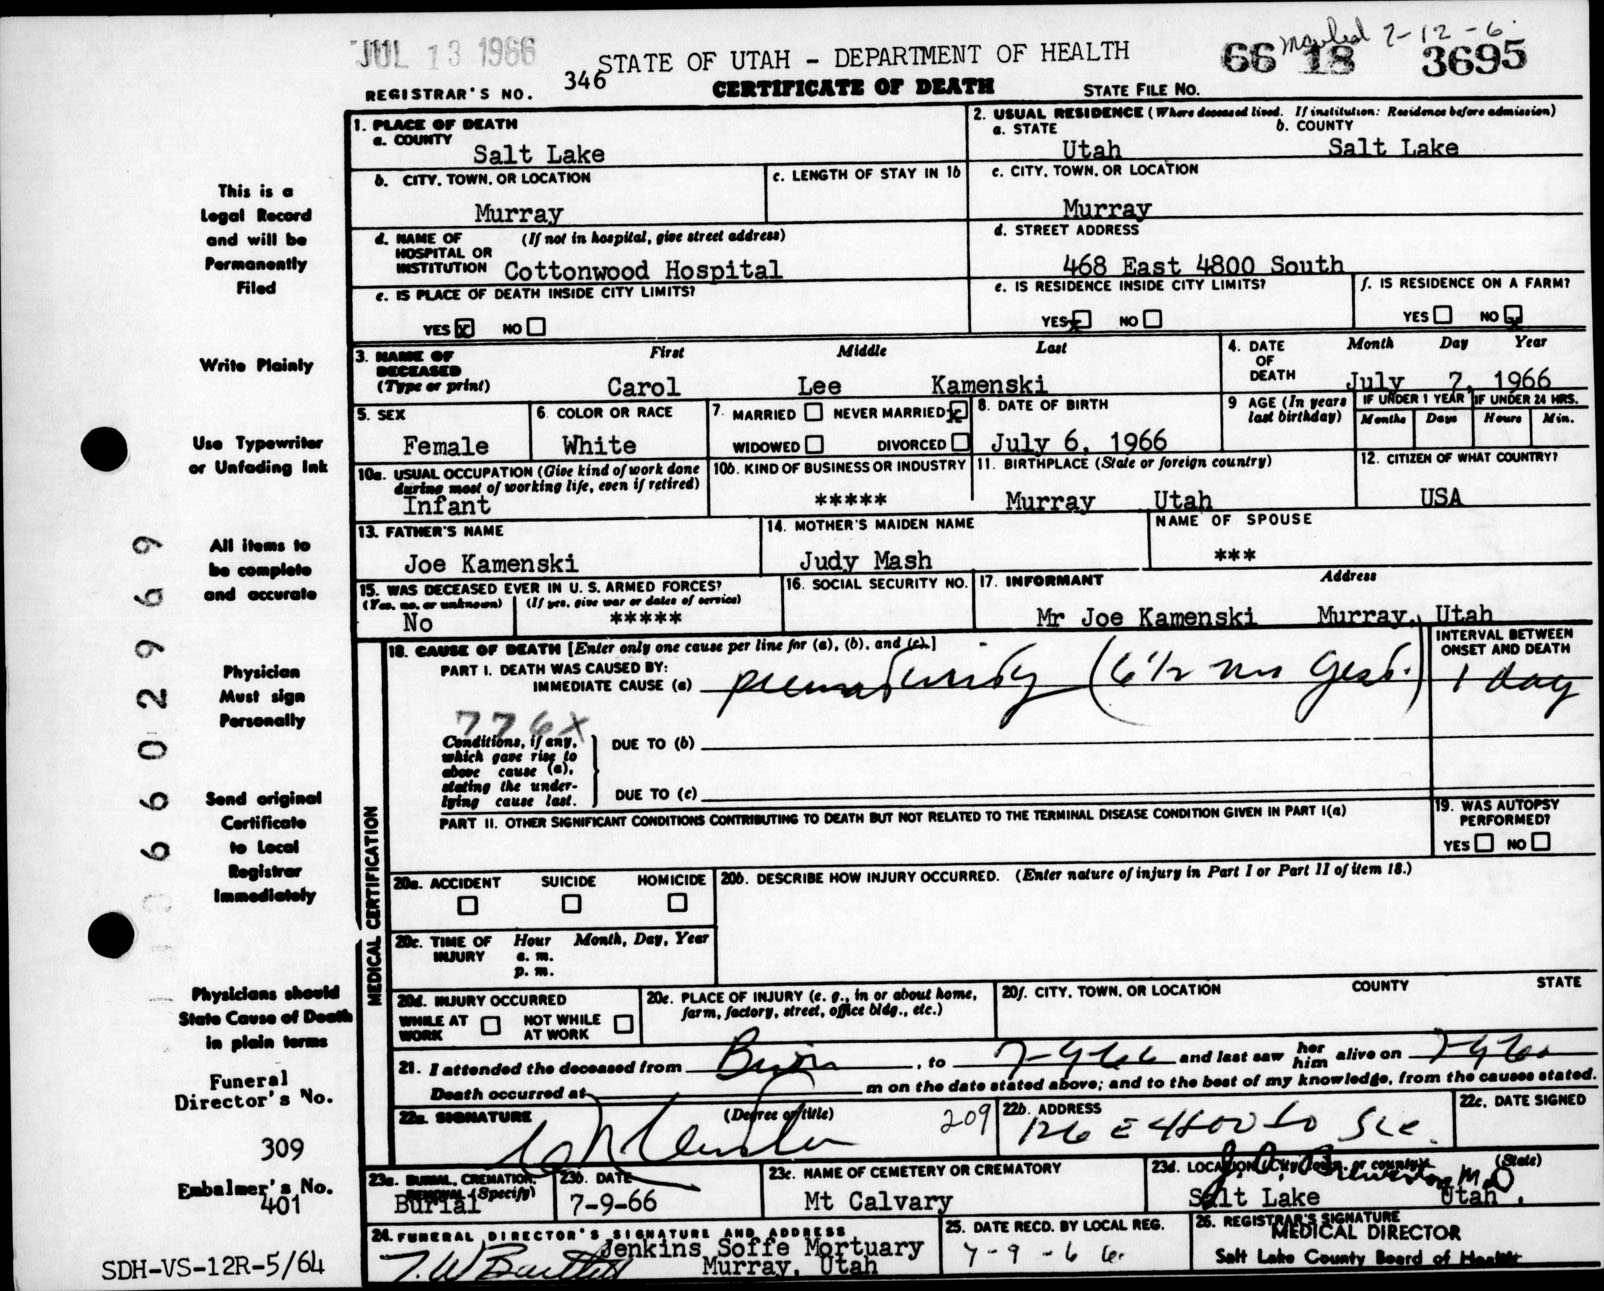 JUL 13 1966
mailed 7-12-6
STATE OF UTAH - DEPARTMENT OF HEALTH
66 18 3695
REGISTRAR'S NO. 346
CERTIFICATE OF DEATH
STATE FILE NO.
1. PLACE OF DEATH
a. COUNTY
Salt Lake
2. USUAL RESIDENCE (Where deceased lived. If institution: Residence before admission)
a. STATE b. COUNTY
Utah Salt Lake
b. CITY, TOWN, OR LOCATION
Murray
c. LENGTH OF STAY IN 1b
c. CITY, TOWN, OR LOCATION
Murray
d. NAME OF HOSPITAL OR INSTITUTION (If not in hospital, give street address)
Cottonwood Hospital
d. STREET ADDRESS
468 East 4800 South
e. IS PLACE OF DEATH INSIDE CITY LIMITS?
YES X NO
e. IS RESIDENCE INSIDE CITY LIMITS?
YES X NO
f. IS RESIDENCE ON A FARM?
YES NO X
3. NAME OF DECEASED (Type or print)
First Middle Last
Carol Lee Kamenski
4. DATE OF DEATH
Month Day Year
July 7, 1966
5. SEX
Female
6. COLOR OR RACE
White
7. MARRIED NEVER MARRIED X
WIDOWED DIVORCED
8. DATE OF BIRTH
July 6, 1966
9 AGE (In years last birthday)
IF UNDER 1 YEAR IF UNDER 24 HRS.
Months Days Hours Min.
10a. USUAL OCCUPATION (Give kind of work done during most of working life, even if retired)
Infant
10b. KIND OF BUSINESS OR INDUSTRY
*****
11. BIRTHPLACE (State or foreign country)
Murray Utah
12. CITIZEN OF WHAT COUNTRY?
USA
13. FATHER'S NAME
Joe Kamenski
14. MOTHER'S MAIDEN NAME
Judy Mash
NAME OF SPOUSE
***
15. WAS DECEASED EVER IN U. S. ARMED FORCES?
(Yes, no, or unknown) (If yes, give war or dates of service)
No *****
16. SOCIAL SECURITY NO.
17. INFORMANT Address
Mr Joe Kamenski Murray, Utah
MEDICAL CERTIFICATION
18. CAUSE OF DEATH [Enter only one cause per line for (a), (b), and (c).]
PART I. DEATH WAS CAUSED BY:
IMMEDIATE CAUSE (a) prematurity (6 1/2 mo Gest.)
INTERVAL BETWEEN ONSET AND DEATH
1 day
776X
Conditions, if any, which gave rise to above cause (a), stating the under-lying cause last.
DUE TO (b)
DUE TO (c)
PART II. OTHER SIGNIFICANT CONDITIONS CONTRIBUTING TO DEATH BUT NOT RELATED TO THE TERMINAL DISEASE CONDITION GIVEN IN PART I(a)
19. WAS AUTOPSY PERFORMED?
YES NO
20a. ACCIDENT SUICIDE HOMICIDE
20b. DESCRIBE HOW INJURY OCCURRED. (Enter nature of injury in Part I or Part II of item 18.)
20c. TIME OF INJURY Hour Month, Day, Year
a. m.
p. m.
20d. INJURY OCCURRED
WHILE AT WORK NOT WHILE AT WORK
20e. PLACE OF INJURY (e. g., in or about home, farm, factory, street, office bldg., etc.)
20f. CITY, TOWN, OR LOCATION COUNTY STATE
21. I attended the deceased from Birth, to and last saw her him alive on
Death occurred at m on the date stated above; and to the best of my knowledge, from the causes stated.
22a. SIGNATURE (Degree or title)
209
22b. ADDRESS
126 E 4800 So SLC.
22c. DATE SIGNED
23a. BURIAL, CREMATION, REMOVAL (Specify)
Burial
23b. DATE
7-9-66
23c. NAME OF CEMETERY OR CREMATORY
Mt Calvary
23d. LOCATION (City, town, or county) (State)
Salt Lake Utah
24. FUNERAL DIRECTOR'S SIGNATURE AND ADDRESS
Jenkins Soffe Mortuary
Murray, Utah
25. DATE RECD. BY LOCAL REG.
7-9-66
26. REGISTRAR'S SIGNATURE
MEDICAL DIRECTOR
Salt Lake County Board of Health
This is a
Legal Record
and will be
Permanently
Filed
Write Plainly
Use Typewriter
or Unfading Ink
All items to
be complete
and accurate
Physician
Must sign
Personally
Send original
Certificate
to Local
Registrar
Immediately
Physicians should
State Cause of Death
in plain terms
Funeral
Director's No.
309
Embalmer's No.
401
SDH-VS-12R-5/64
6602969